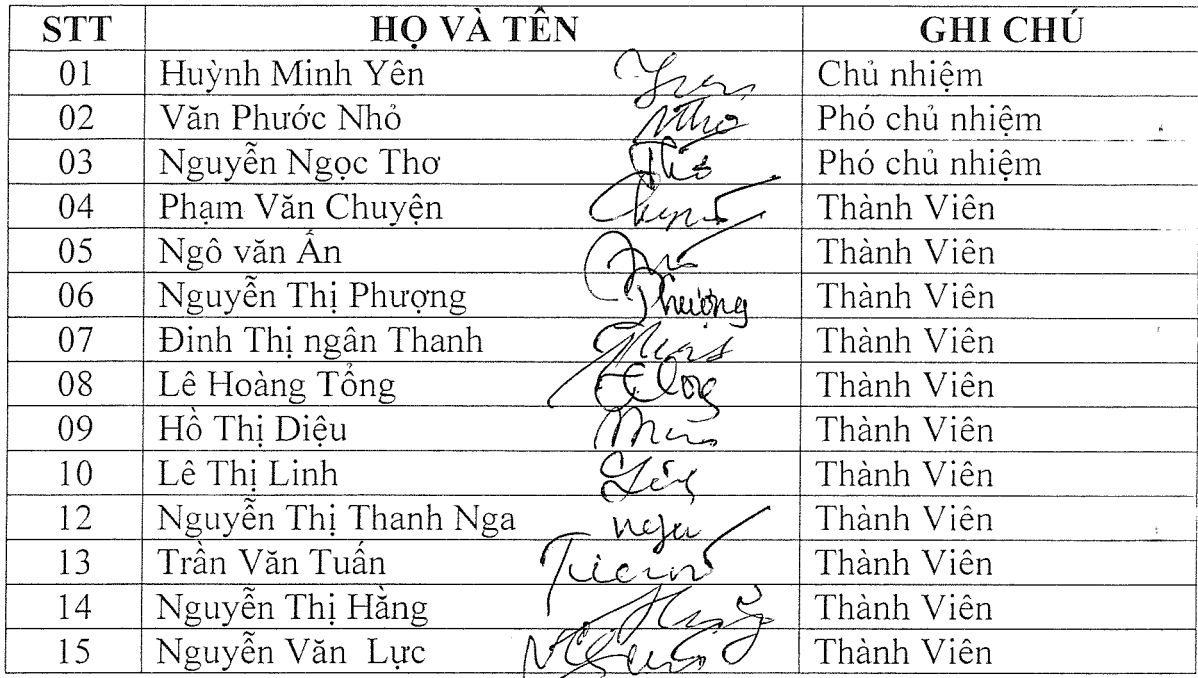 STT HỌ VÀ TÊN GHI CHÚ
01 Huỳnh Minh Yên Yên Chủ nhiệm
02 Văn Phước Nhỏ Nhỏ Phó chủ nhiệm
03 Nguyễn Ngọc Thơ Thơ Phó chủ nhiệm
04 Phạm Văn Chuyện Thành Viên
05 Ngô văn Ẩn Thành Viên
06 Nguyễn Thị Phượng Phượng Thành Viên
07 Đinh Thị ngân Thanh Thành Viên
08 Lê Hoàng Tổng Thành Viên
09 Hồ Thị Diệu Thành Viên
10 Lê Thị Linh Thành Viên
12 Nguyễn Thị Thanh Nga nga Thành Viên
13 Trần Văn Tuấn Thành Viên
14 Nguyễn Thị Hằng Thành Viên
15 Nguyễn Văn Lực Thành Viên